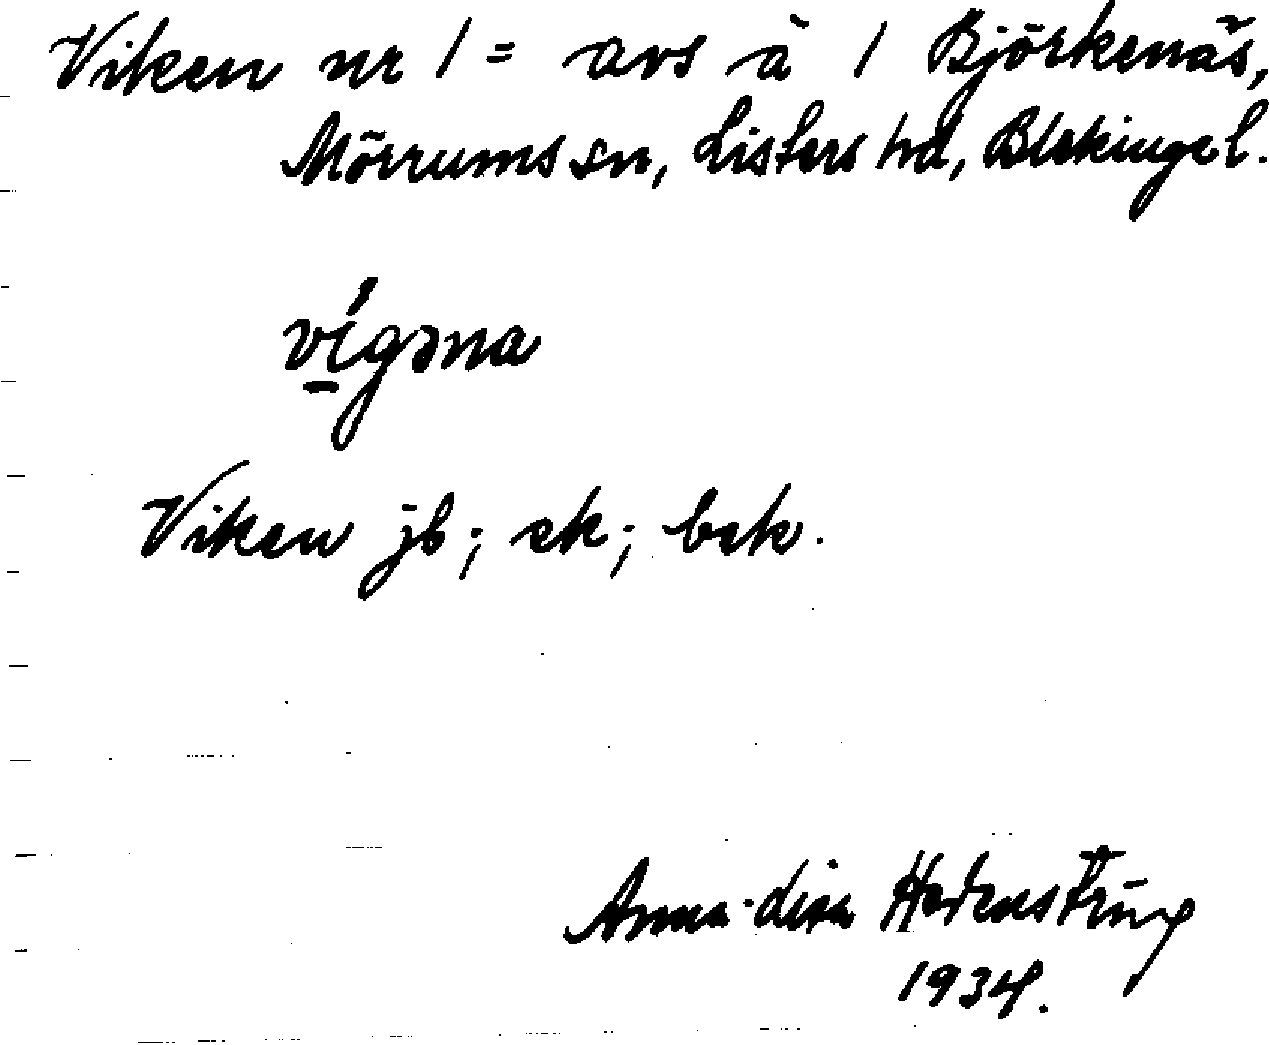 Viken nr 1 = avs å 1 Björkenäs,
Mörrums sn, Listers hd, Blekinge l.
vígəna
Viken jb; ek; bek.
Anna-Lisa
1934.